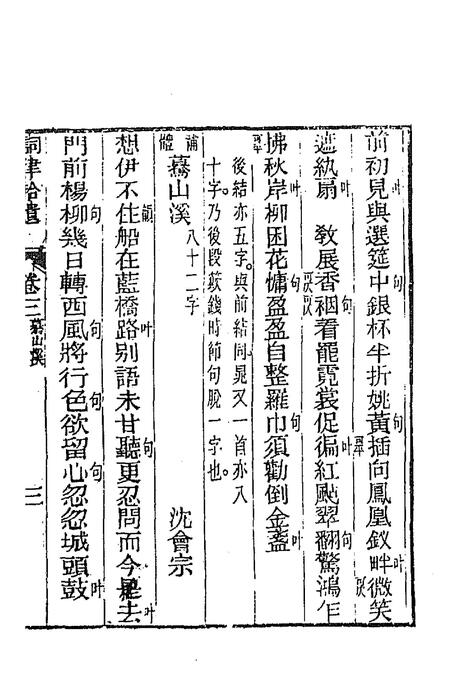 前初見叶與選筵中句銀杯半折姚黃句插向鳳凰釵畔叶微笑
遮紈扇叶 教展香裀句看罷霓裳促徧叶紅颭翠翻句驚鴻乍
拂秋岸叶柳困花慵句盈盈自整羅巾句須勸倒金盞叶
後結亦五字與前結同晁又一首亦八
十字乃後段萩錢時節句脫一字也
補體 驀山溪 八十二字 沈會宗
想伊不住韻船在藍橋路叶別語未甘聽句更忍問而今是去叶
門前楊柳句幾日轉西風句將行色句欲留心句忽忽城頭鼓叶
詞律拾遺 卷三 驀山溪 三